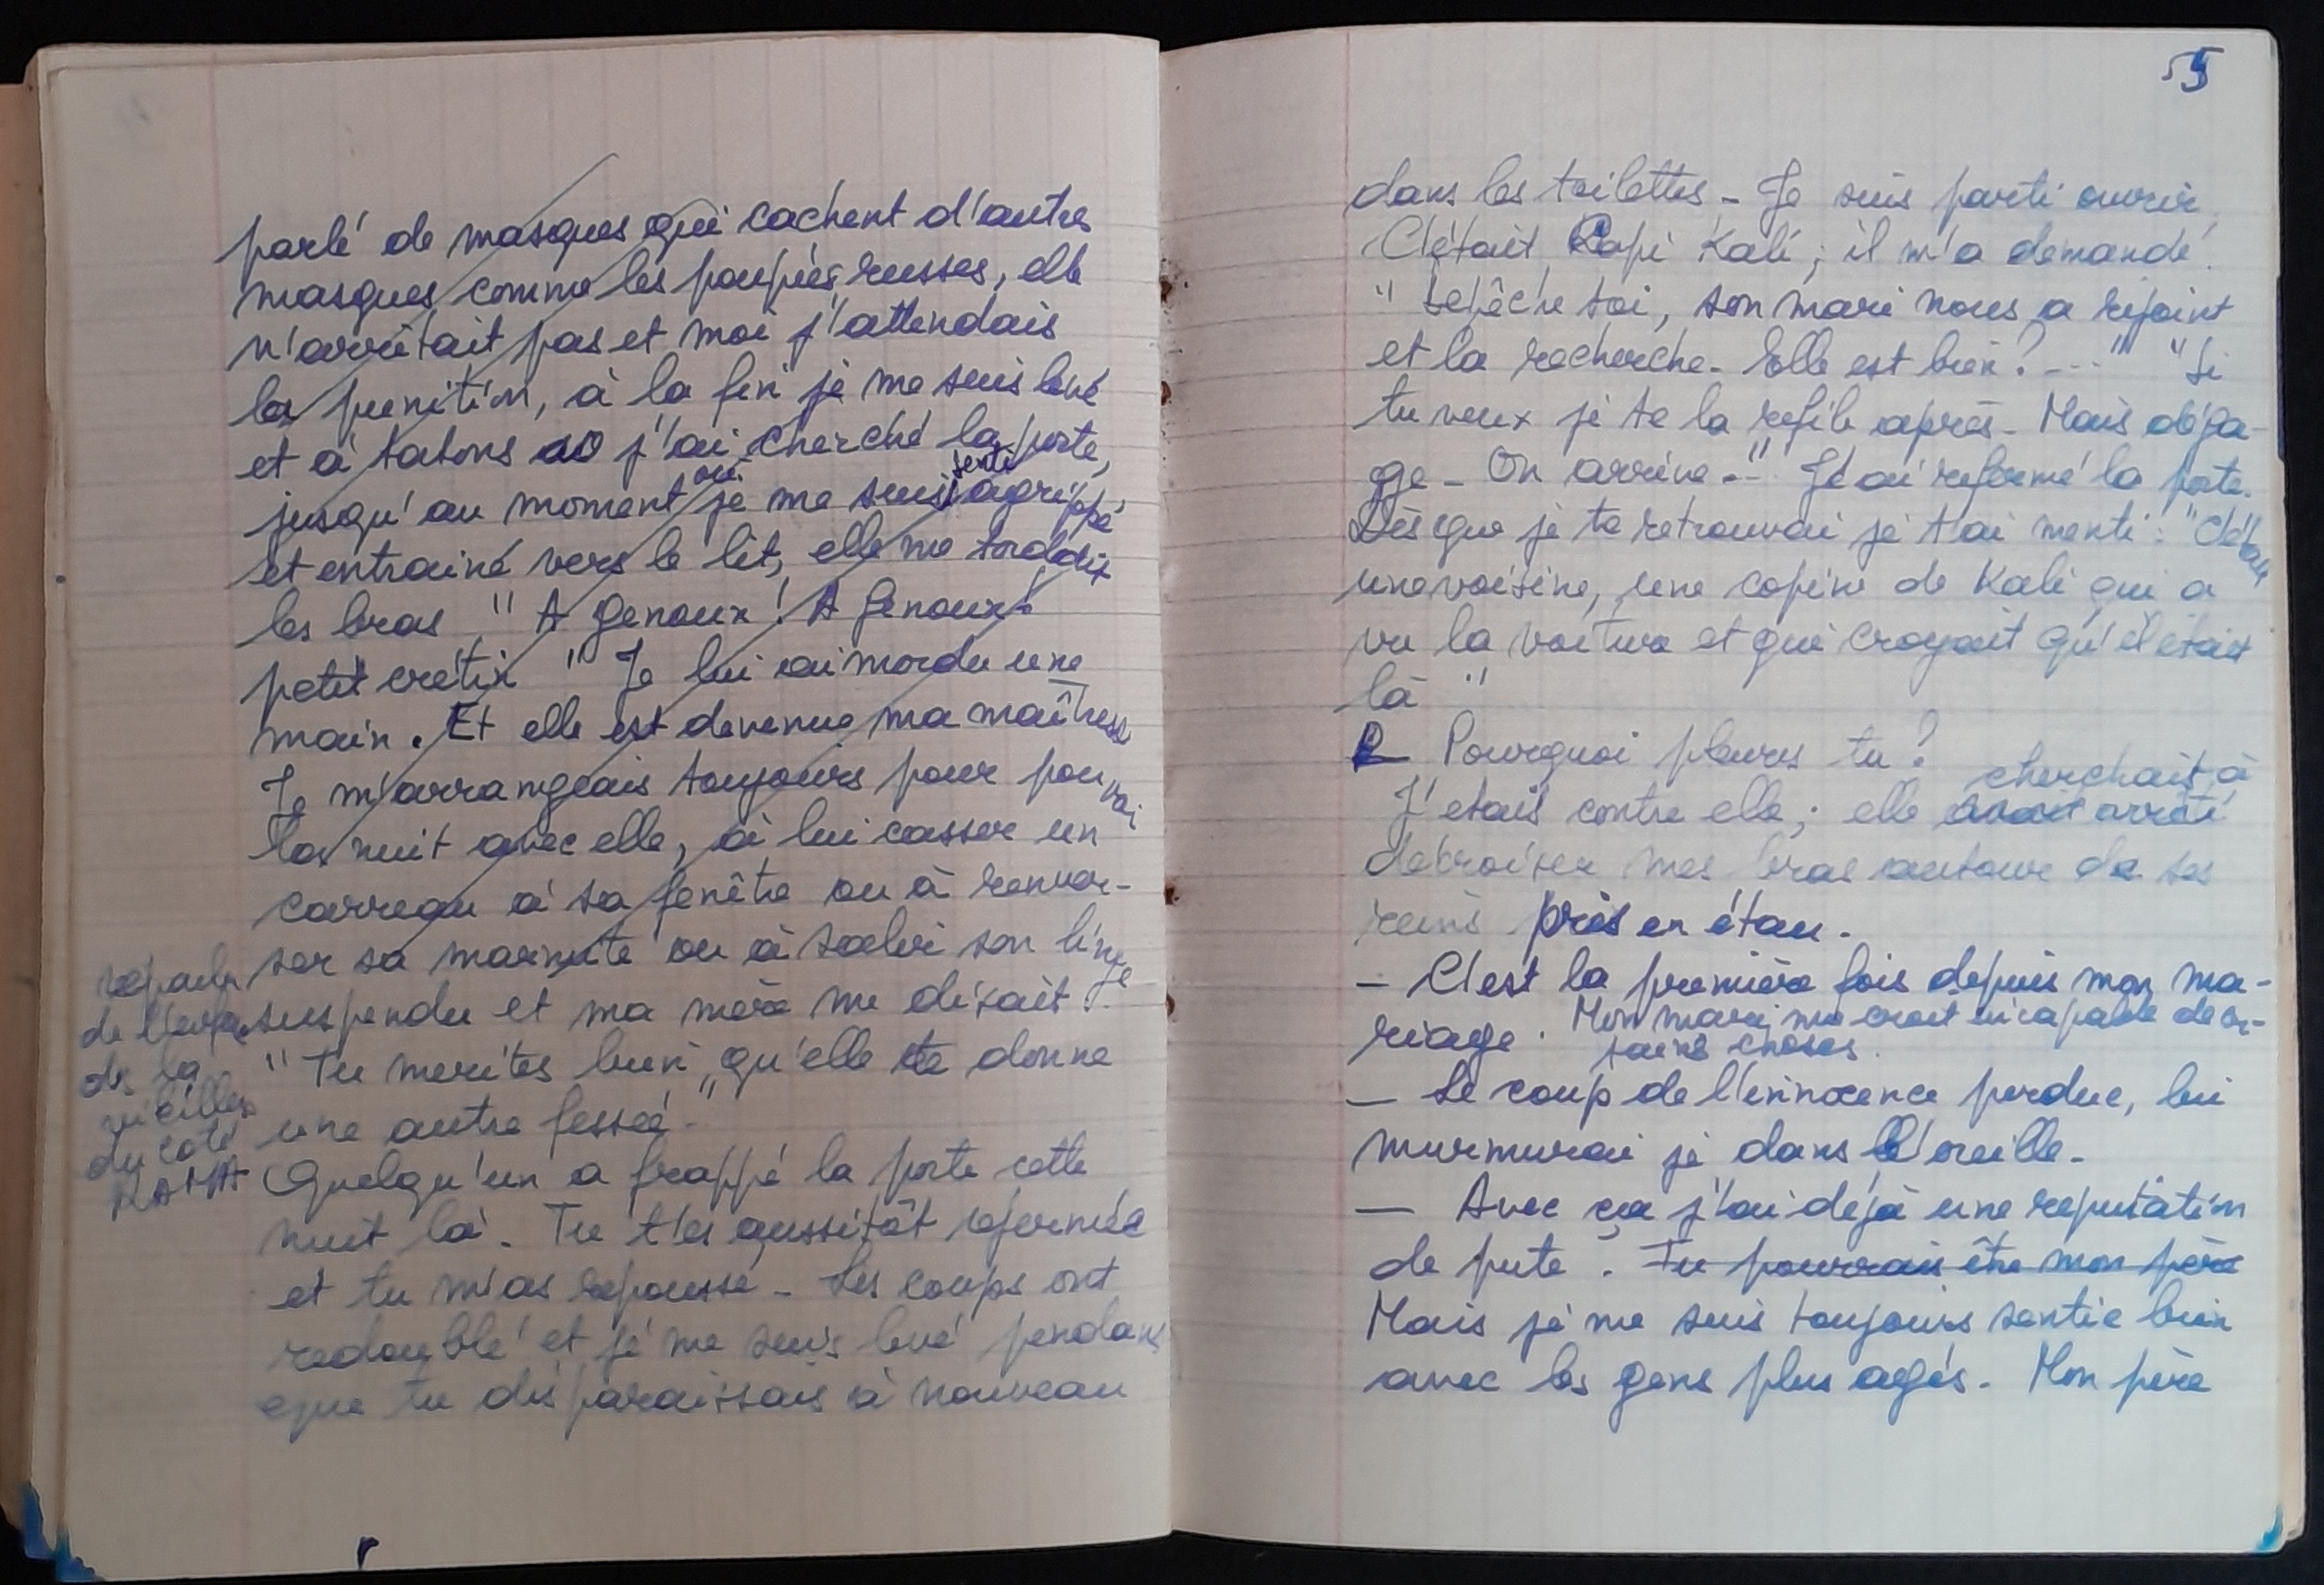 parlé de masques qui cachent d'autres
masques comme les poupées russes, elle
n'arrêtait pas et moi j'attendais
la punition, à la fin je me suis levé
et à tatons j'ai cherché la porte,
jusqu'au moment où je me suis senti agrippé
et entrainé vers le lit, elle me tordait
les bras " A genoux ! A genoux !
petit crétin " Je lui ai mordu une
main. Et elle est devenue ma maîtresse
Je m'arrangeais toujours pour pouvoir
la nuit avec elle, à lui casser un
carreau à sa fenêtre ou à renver-
ser sa marmite ou à salir son linge
suspendu et ma mère me disait :
" Tu merites bien qu'elle te donne
une autre fessée "
Quelqu'un a frappé la porte cette
nuit là. Tu t'es aussitôt refermée
et tu m'as repoussé - Les coups ont
redoublé et je me suis levé pendant
que tu disparaissais à nouveau
reparler
de la
vieille
du coté
55
dans les toilettes - Je suis parti ouvrir,
C'était Kali ; il m'a demandé :
" Dépêche toi, son mari nous a rejoint
et la recherche - Elle est bien ? --- " " Si
tu veux je te la refile après - Mais déga-
ge - On arrive -- " J'ai refermé la porte.
Dès que je te retrouvai je t'ai menti : " C'était
une voisine, une copine de Kali qui a
vu la voiture et qui croyait qu'il était
là "
- Pourquoi pleures tu ?
J'etais contre elle ; elle cherchait à
décroiser mes bras autour de ses
reins pris en étau.
- C'est la première fois depuis mon ma-
riage. Mon mari me croit incapable de cer-
taines choses.
- Le coup de l'innocence perdue, lui
murmurai je dans l'oreille -
- Avec ça j'ai déjà une reputation
de pute. Tu pourrais être mon père
Mais je me suis toujours sentie bien
avec les gens plus agés. Mon père